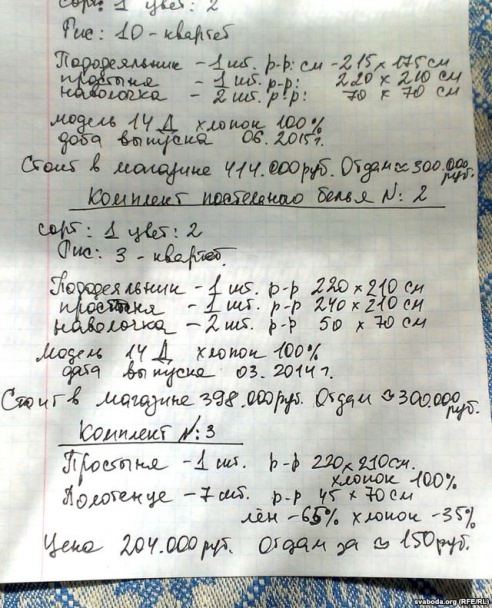 сорт: 1 цвет: 2
Рис: 10 - квартет
Пододеяльник - 1 шт. р-р: см - 215 х 175 см
простыня - 1 шт. р-р: 220 х 210 см
наволочка - 2 шт. р-р: 70 х 70 см
модель 14 Д хлопок 100%
дата выпуска 06. 2015 г.
Стоит в магазине 414.000 руб. Отдам ≈ 300.000 руб.
Комплект постельного белья N: 2
сорт: 1 цвет: 2
Рис: 3 - квартет.
Пододеяльник - 1 шт. р-р 220 х 210 см
простыня - 1 шт. р-р 240 х 210 см
наволочка - 2 шт. р-р 50 х 70 см
модель 14 Д хлопок 100%
дата выпуска 03. 2014 г.
Стоит в магазине 398.000 руб. Отдам ≈ 300.000 руб.
Комплект N: 3
Простыня - 1 шт. р-р 220 х 210 см.
хлопок 100%
Полотенце - 7 шт. р-р 45 х 70 см
лён - 65% хлопок - 35%
Цена 204.000 руб. Отдам за ≈ 150 руб.
svaboda.org (RFE/RL)